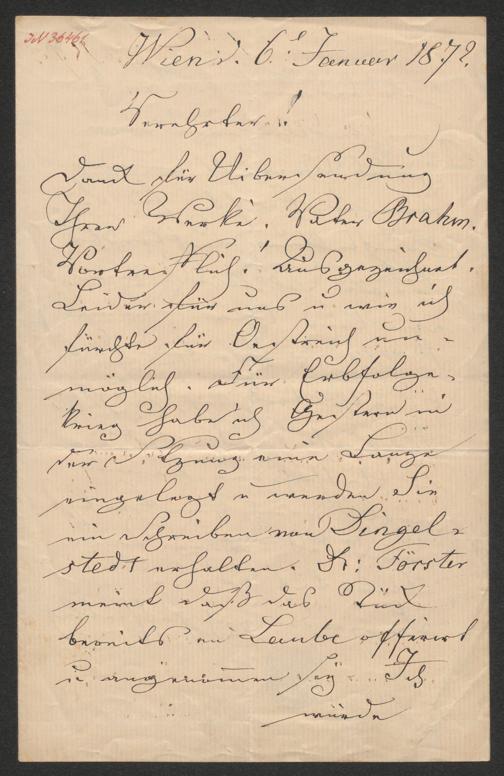 IN 36461
Wien d. 6t Januar 1872.
Verehrter!
Dank für Uibersendung
Ihrer Werke. Vater Brahm.
Vortrefflich! Ausgezeichnet.
Leider für uns u. wie ich
fürchte für Oestreich un-
möglich. Für Erbfolge-
krieg habe ich Gestern in
der Sitzung eine Lanze
eingelegt u werden Sie
ein Schreiben von Dingel-
stedt erhalten. Dr: Förster
meint daß das Stück
bereits an Laube offerirt
u. angenommen sey. Ich
würde